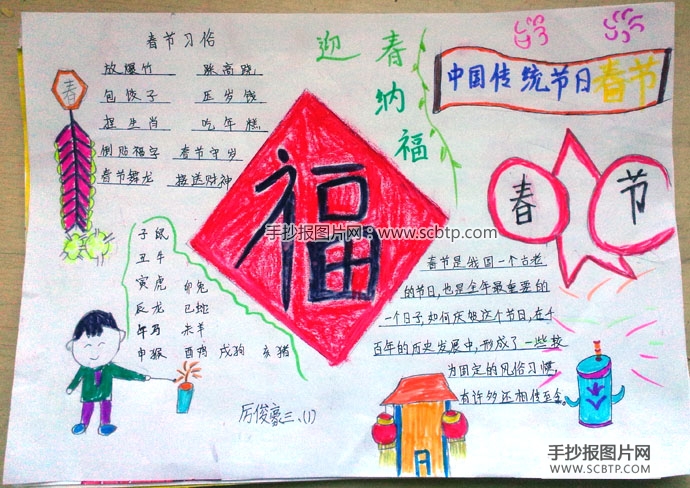 春节习俗
放爆竹 踩高跷
包饺子 压岁钱
捏生肖 吃年糕
倒贴福字 春节守岁
春节舞龙 接送财神
春
迎春纳福
中国传统节日春节
福
春节
手抄报图片网：www.scbtp.com
子鼠
丑牛
寅虎 卯兔
辰龙 巳蛇
午马 未羊
申猴 酉鸡 戌狗 亥猪
春节是我国一个古老
的节日,也是全年最重要的
一个日子,如何庆贺这个节日,在千
百年的历史发展中,形成了一些较
为固定的风俗习惯,
有许多还相传至今
厉俊豪三、(1)
手抄报图片网
WWW.SCBTP.COM